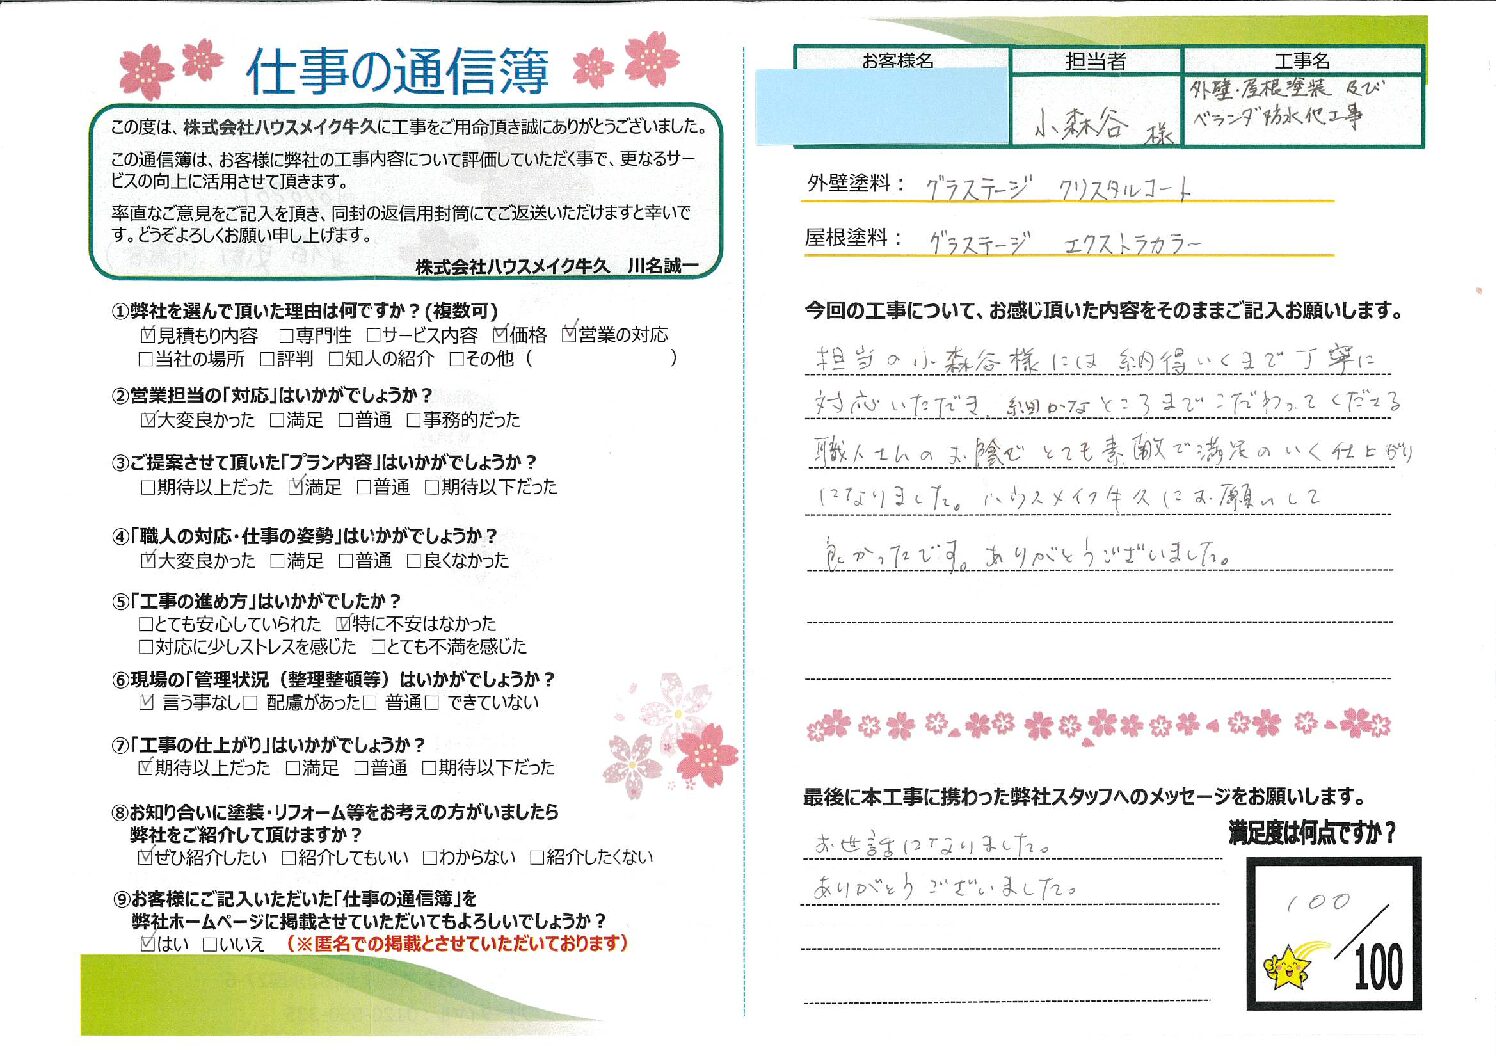 仕事の通信簿
この度は、株式会社ハウスメイク牛久に工事をご用命頂き誠にありがとうございました。
この通信簿は、お客様に弊社の工事内容について評価していただく事で、更なるサー
ビスの向上に活用させて頂きます。
率直なご意見をご記入を頂き、同封の返信用封筒にてご返送いただけますと幸いで
す。どうぞよろしくお願い申し上げます。
株式会社ハウスメイク牛久　川名誠一
①弊社を選んで頂いた理由は何ですか？(複数可)
☑見積もり内容 □専門性 □サービス内容 ☑価格 ☑営業の対応
□当社の場所 □評判 □知人の紹介 □その他（　　　　　　　　）
②営業担当の「対応」はいかがでしょうか？
☑大変良かった □満足 □普通 □事務的だった
③ご提案させて頂いた「プラン内容」はいかがでしょうか？
□期待以上だった ☑満足 □普通 □期待以下だった
④「職人の対応・仕事の姿勢」はいかがでしょうか？
☑大変良かった □満足 □普通 □良くなかった
⑤「工事の進め方」はいかがでしたか？
□とても安心していられた ☑特に不安はなかった
□対応に少しストレスを感じた □とても不満を感じた
⑥現場の「管理状況（整理整頓等）はいかがでしょうか？
☑ 言う事なし□ 配慮があった□ 普通□ できていない
⑦「工事の仕上がり」はいかがでしょうか？
☑期待以上だった □満足 □普通 □期待以下だった
⑧お知り合いに塗装・リフォーム等をお考えの方がいましたら
弊社をご紹介して頂けますか？
☑ぜひ紹介したい □紹介してもいい □わからない □紹介したくない
⑨お客様にご記入いただいた「仕事の通信簿」を
弊社ホームページに掲載させていただいてもよろしいでしょうか？
☑はい □いいえ （※匿名での掲載とさせていただいております）
お客様名 担当者 工事名
小森谷 様
外壁・屋根塗装 及び
ベランダ防水他工事
外壁塗料： グラステージ クリスタルコート
屋根塗料： グラステージ エクストラカラー
今回の工事について、お感じ頂いた内容をそのままご記入お願いします。
担当の小森谷様には納得いくまで丁寧に
対応いただき、細かなところまでこだわってくださる
職人さんのお陰でとても素敵で満足のいく仕上がり
になりました。ハウスメイク牛久にお願いして
良かったです。ありがとうございました。
最後に本工事に携わった弊社スタッフへのメッセージをお願いします。
お世話になりました。
ありがとうございました。
満足度は何点ですか？
100
/100